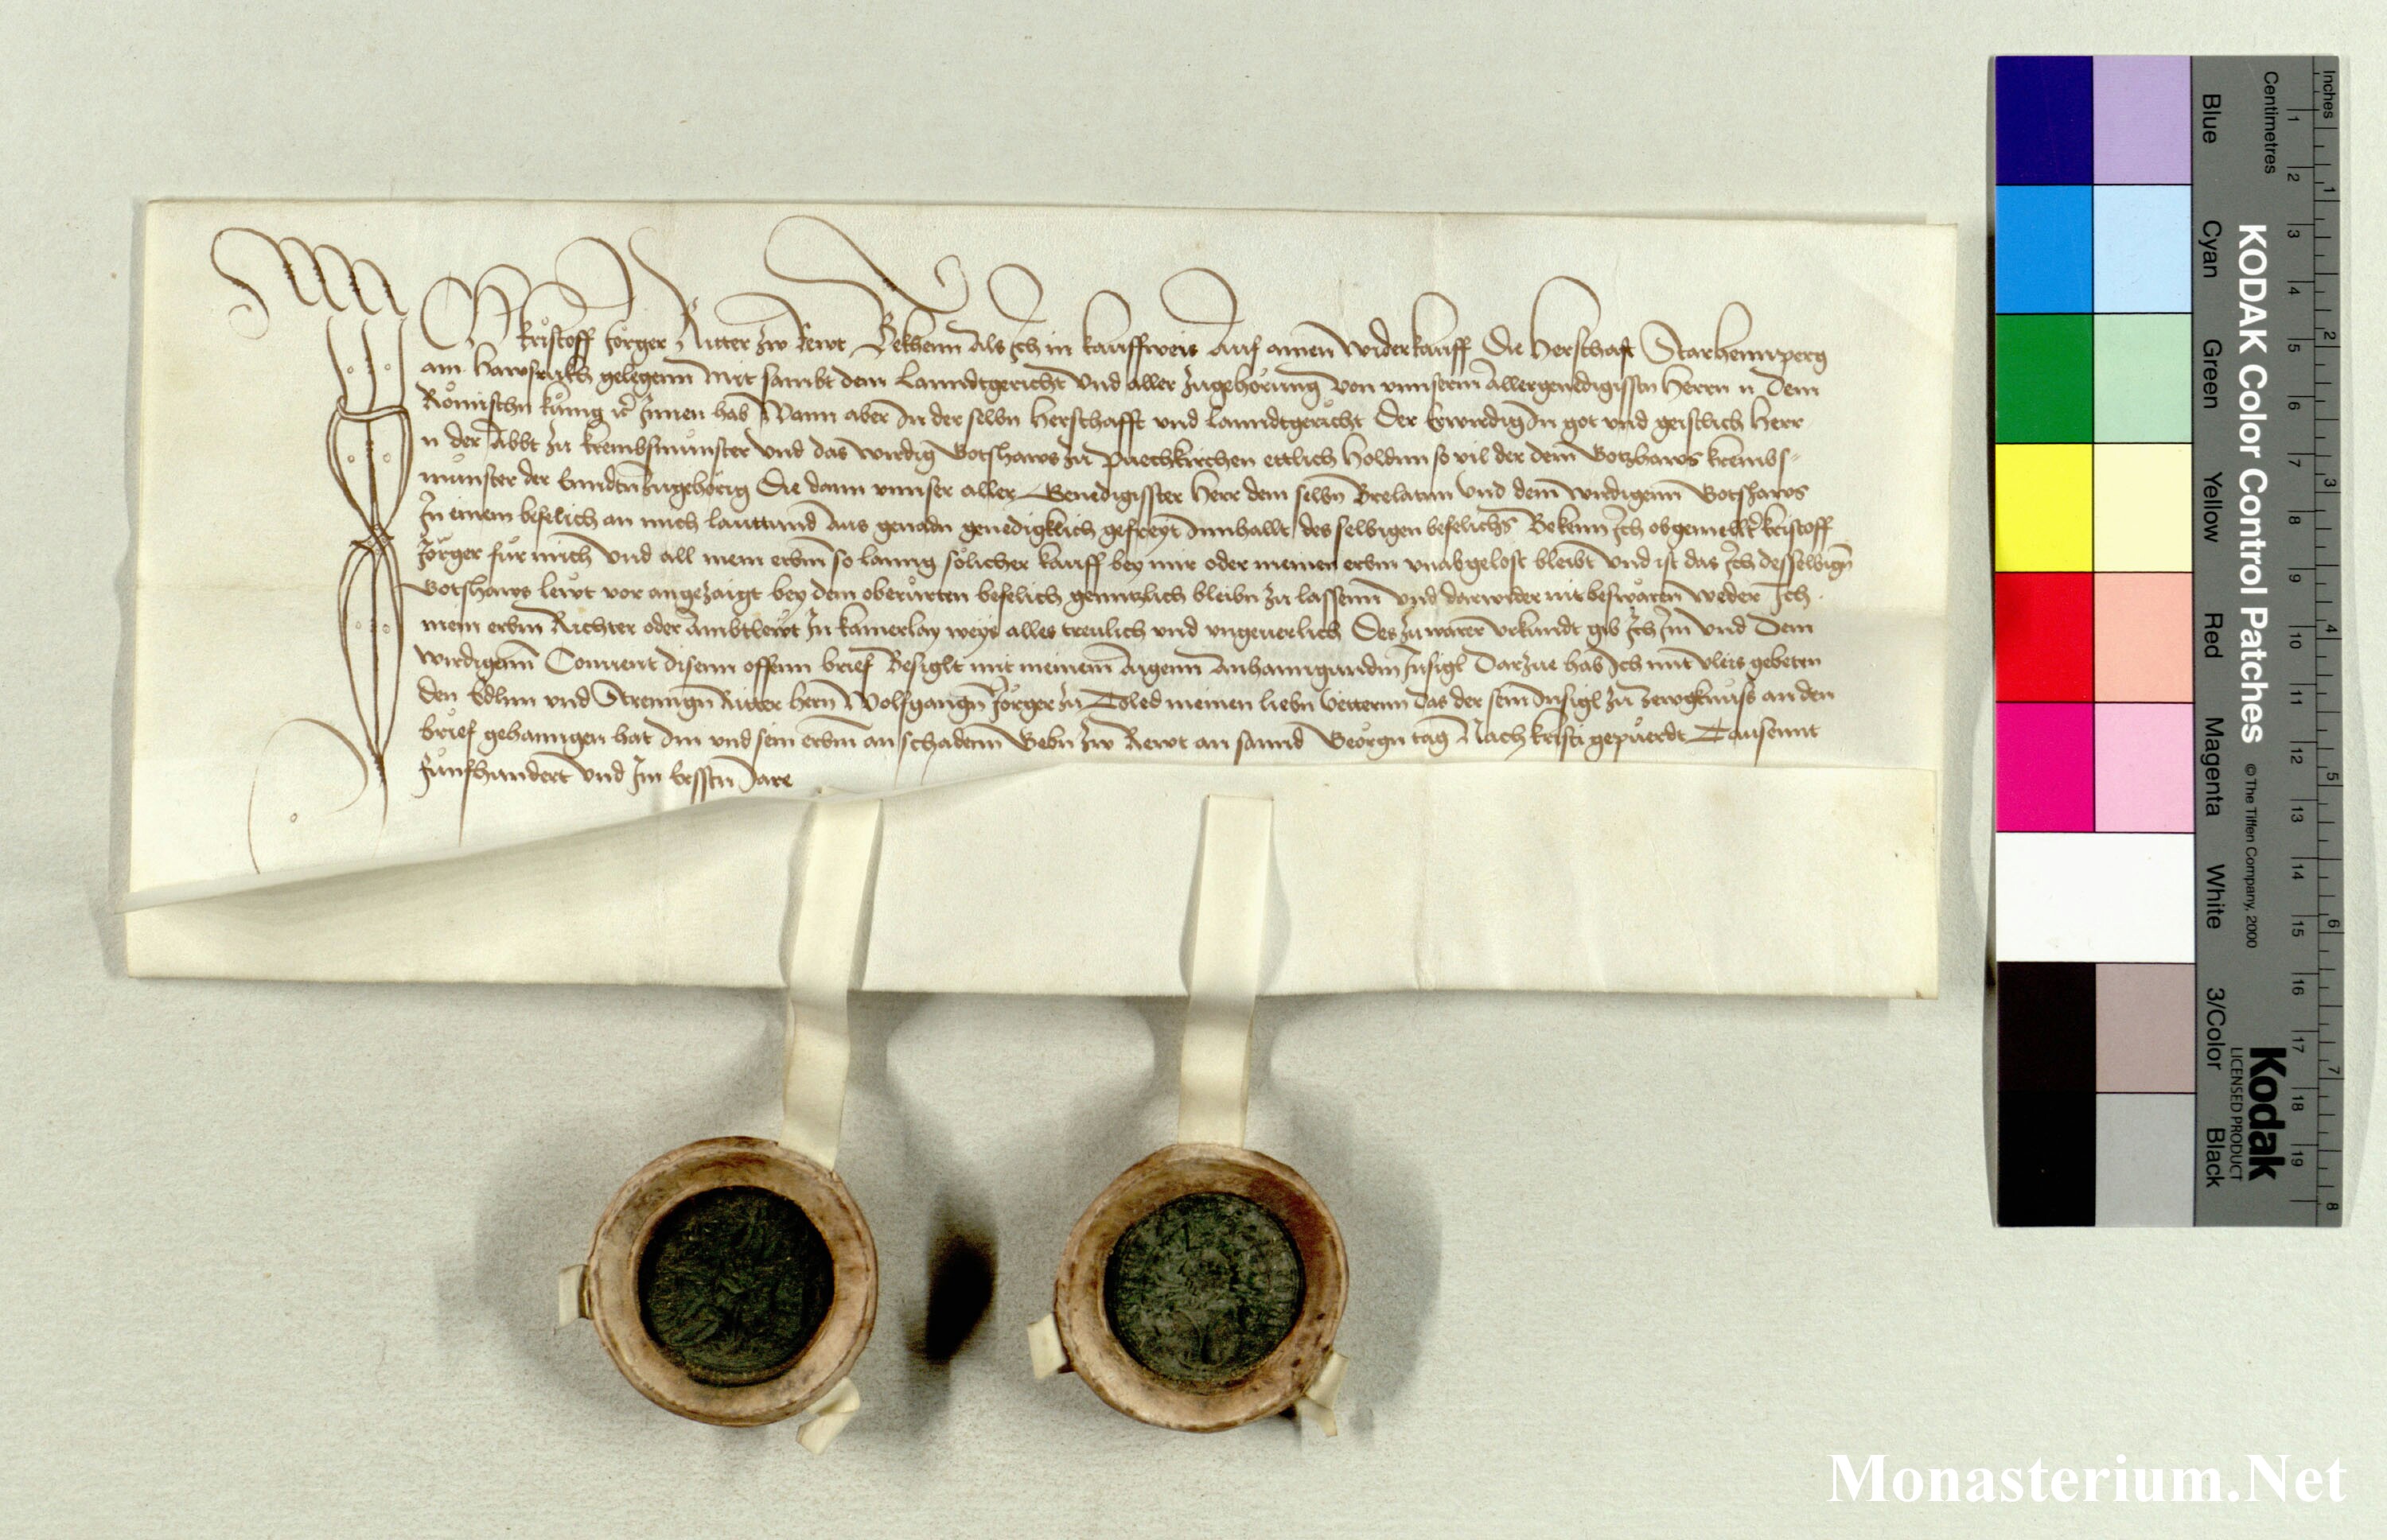 Ich Kristoff Jörger Ritter zw Rewt Bekhenn als Ich in kauffweis Auf ainen widerkauff Die Herschaft Starhennperg
am Hawsrukh gelegenn Mit sambt dem Lanndtgericht Und aller Zugehörung von unnserm Allergenedigissten Herrn n dem
Römischn künig Innen hab Wann aber In der selbn Herschafft und lanndtgericht Der Erwirdig In got und geistlich Herr
n der Abbt zu krembsmünster und das wirdig Gotshaws zu Puechkirchen ettlich Holdnn so vil der dem Gotzhaws krembs-
münster der Enndtn zugehörig Die dann unnser aller Genedigisster Herr dem selbn Brelatnn Und dem wirdigenn Gotshaws
In einem befelich an mich lauttund Aus genadn genedigklich gefreyt Innhallt des selbigen befelichs Bekenn Ich obgemellter kristoff
Jörger für mich Und all mein erbnn so lanng sölicher kauff bey mir oder meinen erbnn unabgelöst bleibt Und ist das Ich desselbign
Gotshaws lewt vor angezaigt bey dem oberürten befelich genntzlich bleibn zu lassenn Und darwider nit beswären weder Ich
mein erbnn Richter oder Ambtlewt In kamerlay weys alles treulich und ungeuerlich Des zu warer urkundt gib Ich Im Und Dem
wirdigenn Conuent disenn offenn brief Besiglt mit meinem Aigenn Anhanngundm Insigl Darzue hab Ich mit vleis gebeten
Den Edlnn und Strenngn Ritter hern Wolfganngn Jörger zu Toled meinen liebn Vetternn Das der sein Insigl zu zewgknuss an den
brief gehanngen hat Im und sein erbnn an schadenn Gebn zw Rewt an sannd Geörgn tag Nach kristi gepuerdt Tausennt
fünfhundert und Im ersstn Jare
Inches
Centimetres
KODAK Color Control Patches
© The Tiffen Company, 2000
Kodak
LICENSED PRODUCT
Blue
Cyan
Green
Yellow
Red
Magenta
White
3/Color
Black
1 2 3 4 5 6 7 8 9 10 11 12 13 14 15 16 17 18 19
1 2 3 4 5 6 7 8
Monasterium.Net